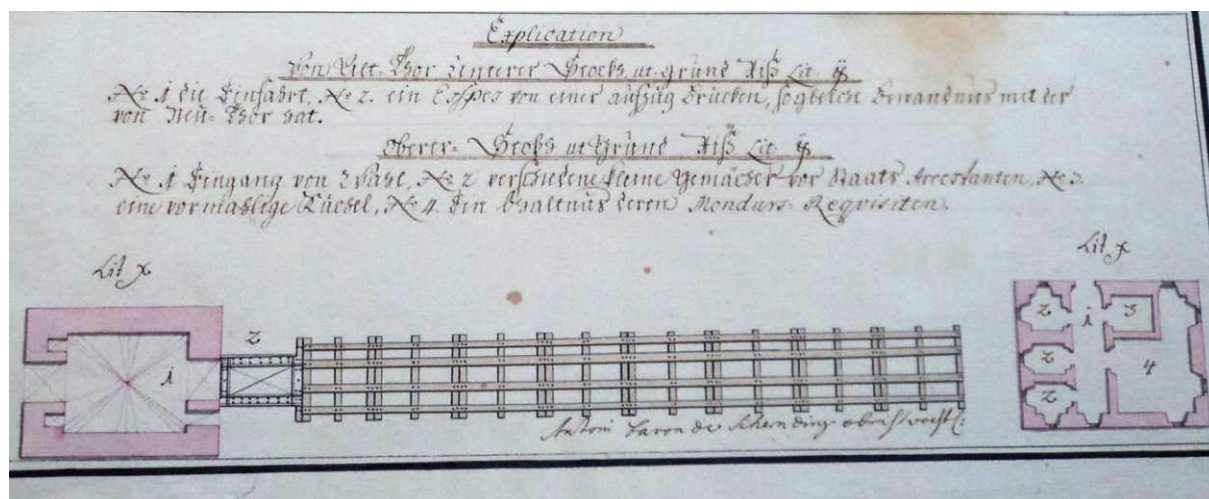 Explication
Von Alt- Thor Unterer Stock ut grund Riß Lit. x
No. 1 die Einfahrt, No 2. ein Espes von einer aufzug Brucken, sogleiche bewandnus mit der
von Neu- Thor hat.
Oberer- Stock ut Grund Riß Lit. x
No. 1 Eingang von Wahl, No 2 verschidene kleine Gemächer vor Staats Arrestanten, No 3.
eine vormahlige Kuchel, No 4. Ein bhaltnus deren Mondurs- Requisiten.
Lit x
Lit x
1
2
1
2
3
2
4
2
Antoni baron de